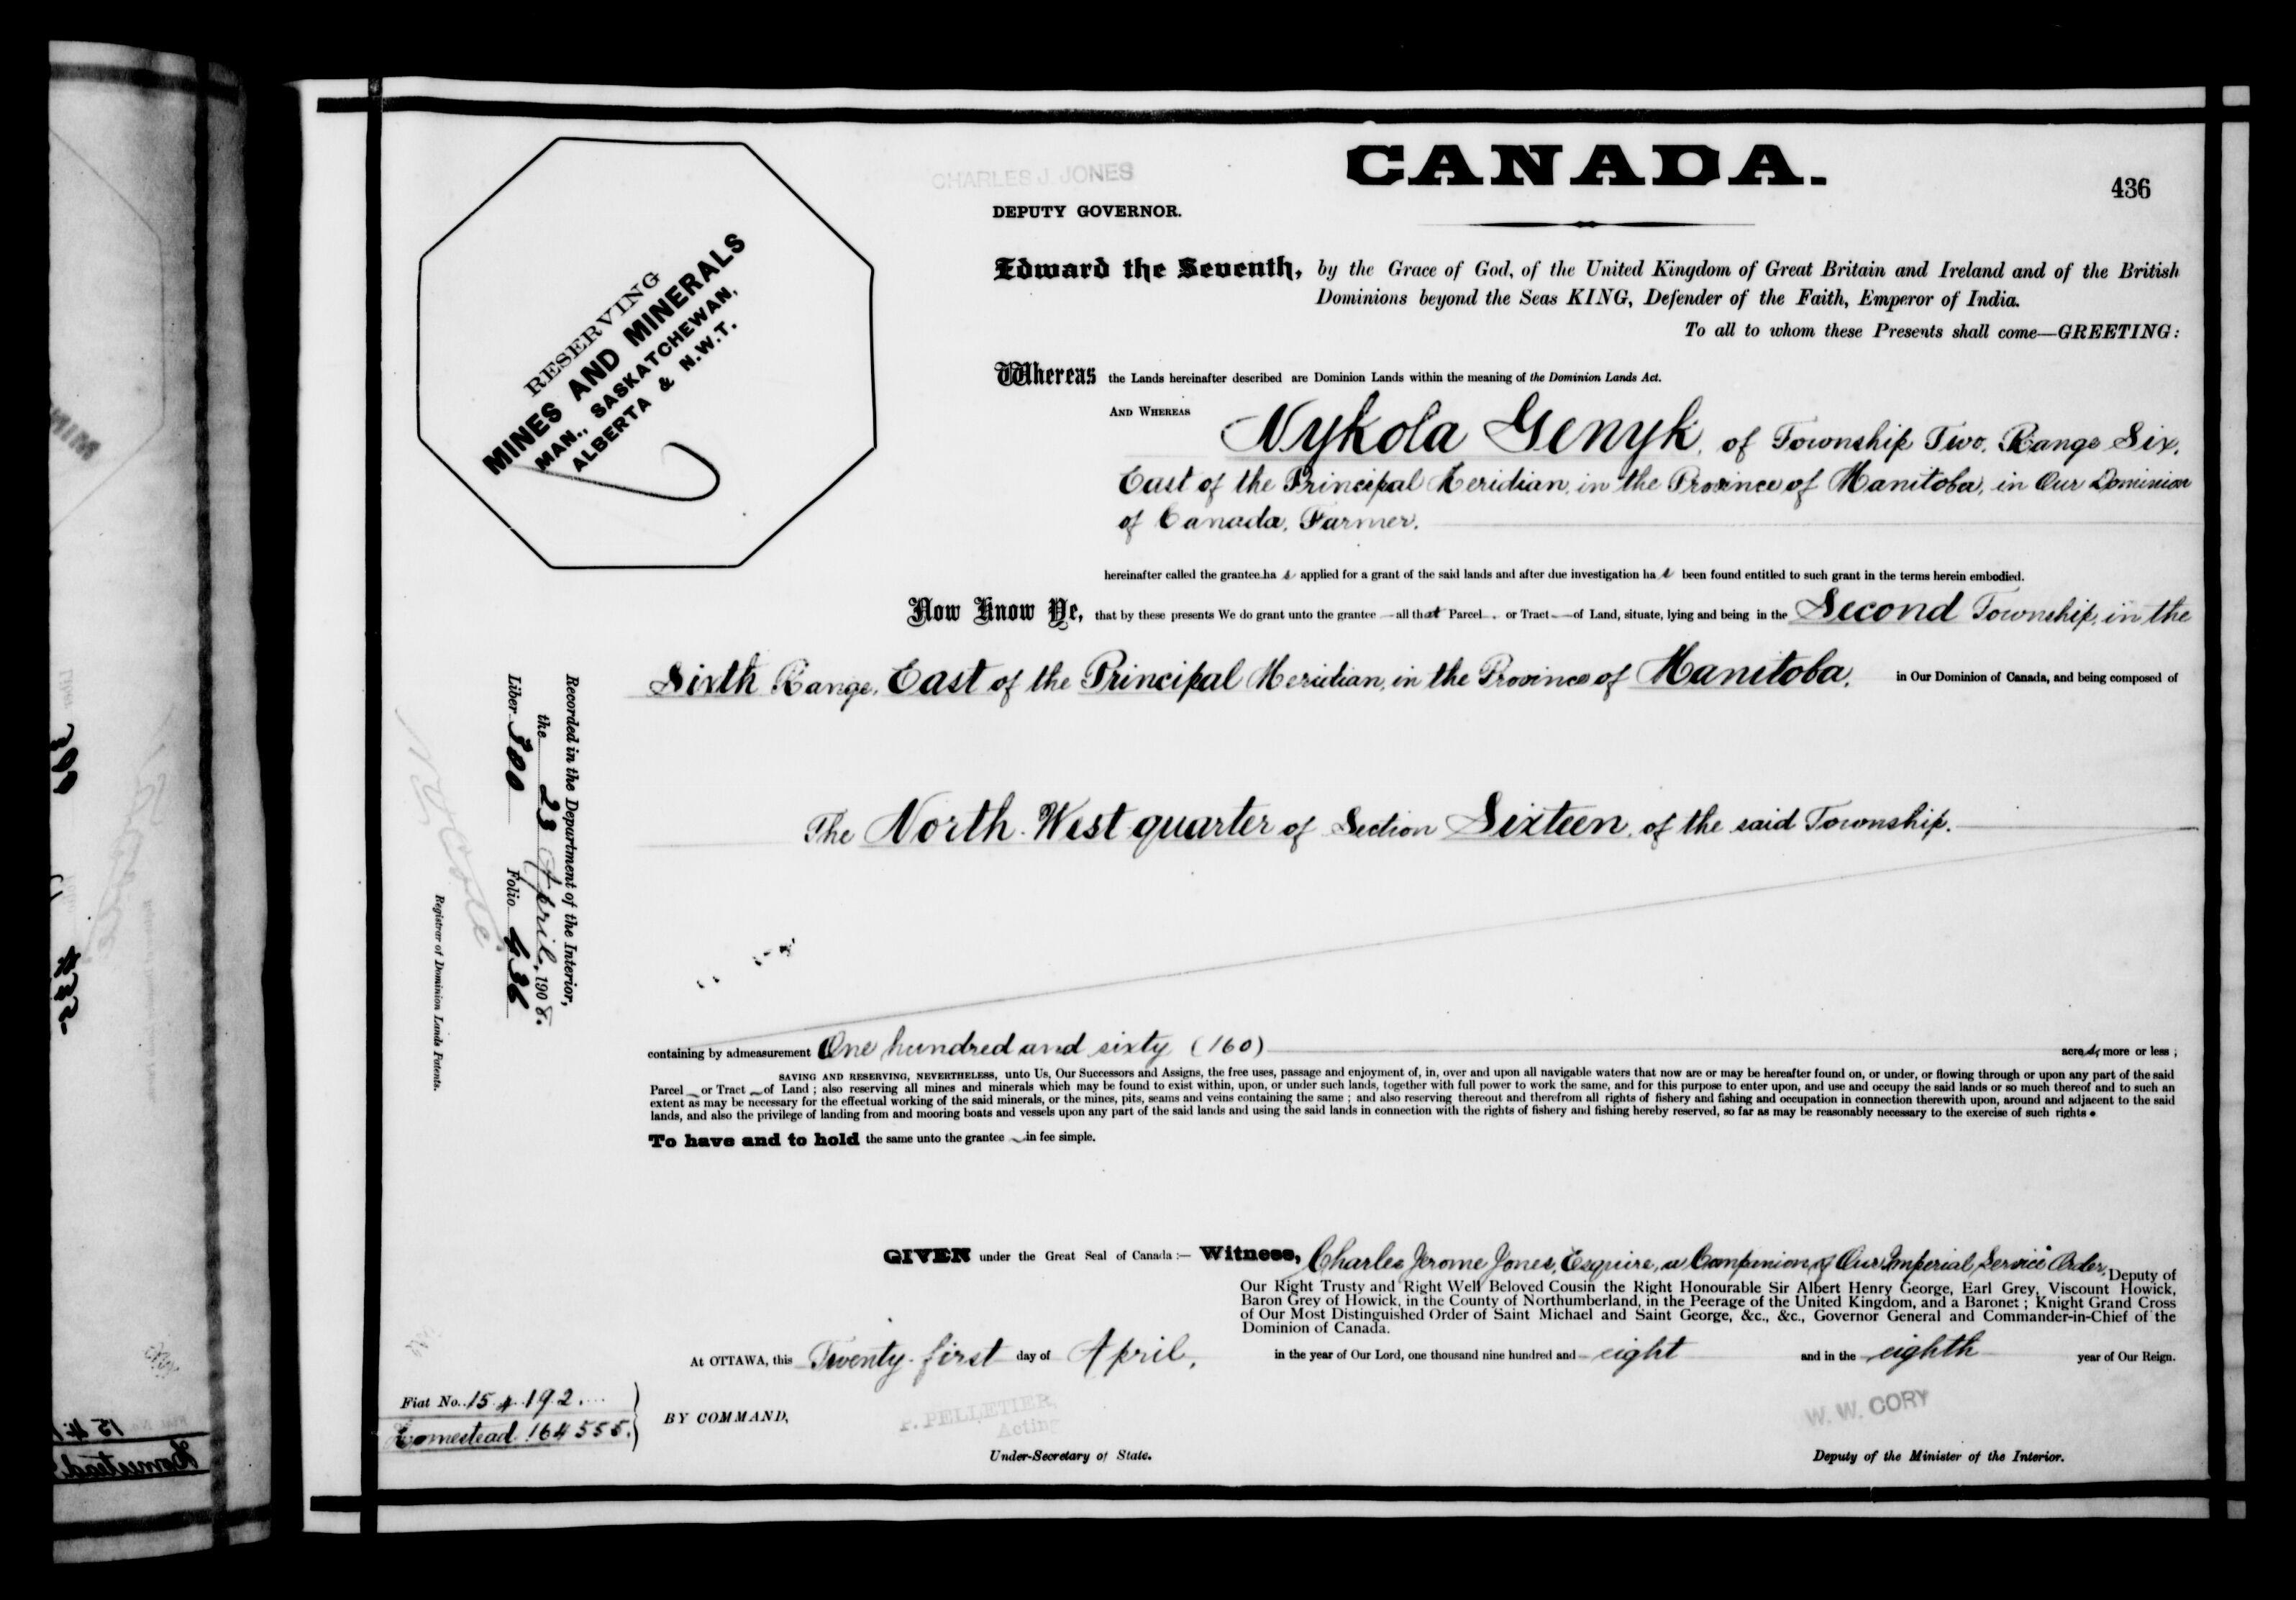 CHARLES J. JONES
DEPUTY GOVERNOR.
CANADA.
436
RESERVING
MINES AND MINERALS
MAN., SASKATCHEWAN,
ALBERTA & N.W.T.
Edward the Seventh, by the Grace of God, of the United Kingdom of Great Britain and Ireland and of the British
Dominions beyond the Seas KING, Defender of the Faith, Emperor of India.
To all to whom these Presents shall come—GREETING:
Whereas the Lands hereinafter described are Dominion Lands within the meaning of the Dominion Lands Act.
AND WHEREAS Nykola Genyk, of Township Two, Range Six,
East of the Principal Meridian, in the Province of Manitoba, in Our Dominion
of Canada, Farmer.
hereinafter called the grantee has applied for a grant of the said lands and after due investigation has been found entitled to such grant in the terms herein embodied.
Now Know Ye, that by these presents We do grant unto the grantee — all that Parcel . or Tract — of Land, situate, lying and being in the Second Township, in the
Sixth Range, East of the Principal Meridian, in the Province of Manitoba, in Our Dominion of Canada, and being composed of
The North West quarter of Section Sixteen, of the said Township.
containing by admeasurement One hundred and sixty (160) acres, more or less ;
SAVING AND RESERVING, NEVERTHELESS, unto Us, Our Successors and Assigns, the free uses, passage and enjoyment of, in, over and upon all navigable waters that now are or may be hereafter found on, or under, or flowing through or upon any part of the said
Parcel or Tract of Land ; also reserving all mines and minerals which may be found to exist within, upon, or under such lands, together with full power to work the same, and for this purpose to enter upon, and use and occupy the said lands or so much thereof and to such an
extent as may be necessary for the effectual working of the said minerals, or the mines, pits, seams and veins containing the same ; and also reserving thereout and therefrom all rights of fishery and fishing and occupation in connection therewith upon, around and adjacent to the said
lands, and also the privilege of landing from and mooring boats and vessels upon any part of the said lands and using the said lands in connection with the rights of fishery and fishing hereby reserved, so far as may be reasonably necessary to the exercise of such rights.
To have and to hold the same unto the grantee in fee simple.
Recorded in the Department of the Interior,
the 23 April, 1908.
Liber 300 Folio 436
Registrar of Dominion Lands Patents.
GIVEN under the Great Seal of Canada :— Witness, Charles Jerome Jones, Esquire, a Companion of Our Imperial Service Order, Deputy of
Our Right Trusty and Right Well Beloved Cousin the Right Honourable Sir Albert Henry George, Earl Grey, Viscount Howick,
Baron Grey of Howick, in the County of Northumberland, in the Peerage of the United Kingdom, and a Baronet ; Knight Grand Cross
of Our Most Distinguished Order of Saint Michael and Saint George, &c., &c., Governor General and Commander-in-Chief of the
Dominion of Canada.
At OTTAWA, this Twenty-first day of April, in the year of Our Lord, one thousand nine hundred and eight and in the eighth year of Our Reign.
Fiat No. 154192.
Homestead 164555.
BY COMMAND,
P. PELLETIER,
Acting
Under-Secretary of State.
W. W. CORY
Deputy of the Minister of the Interior.